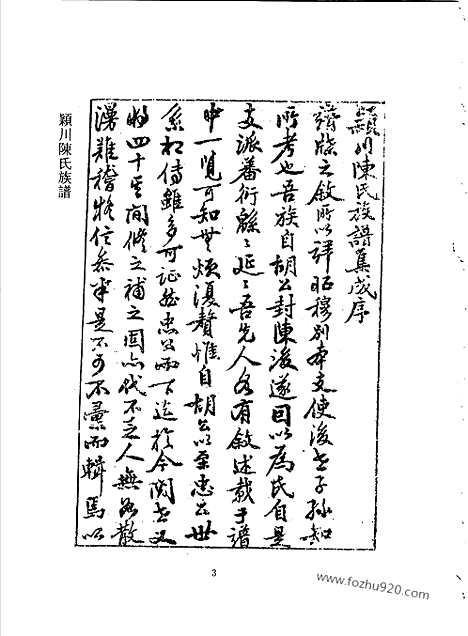 穎川陳氏族譜集成序
譜牒之敘所以詳昭穆別本支使後世子孫知
所考也吾族自胡公封陳後遂因以為氏自是
支派蕃衍緜緜延延吾先人各有敘述載于譜
中一覽可知無煩復贅惟自胡公以至忠公世
系相傳雖多可証然忠公而下迄於今閱世又
將四十其間修之補之固亦代不乏人無如散
漫難稽疑信參半是不可不彙而輯焉以
穎川陳氏族譜
3
www.fozhu920.com